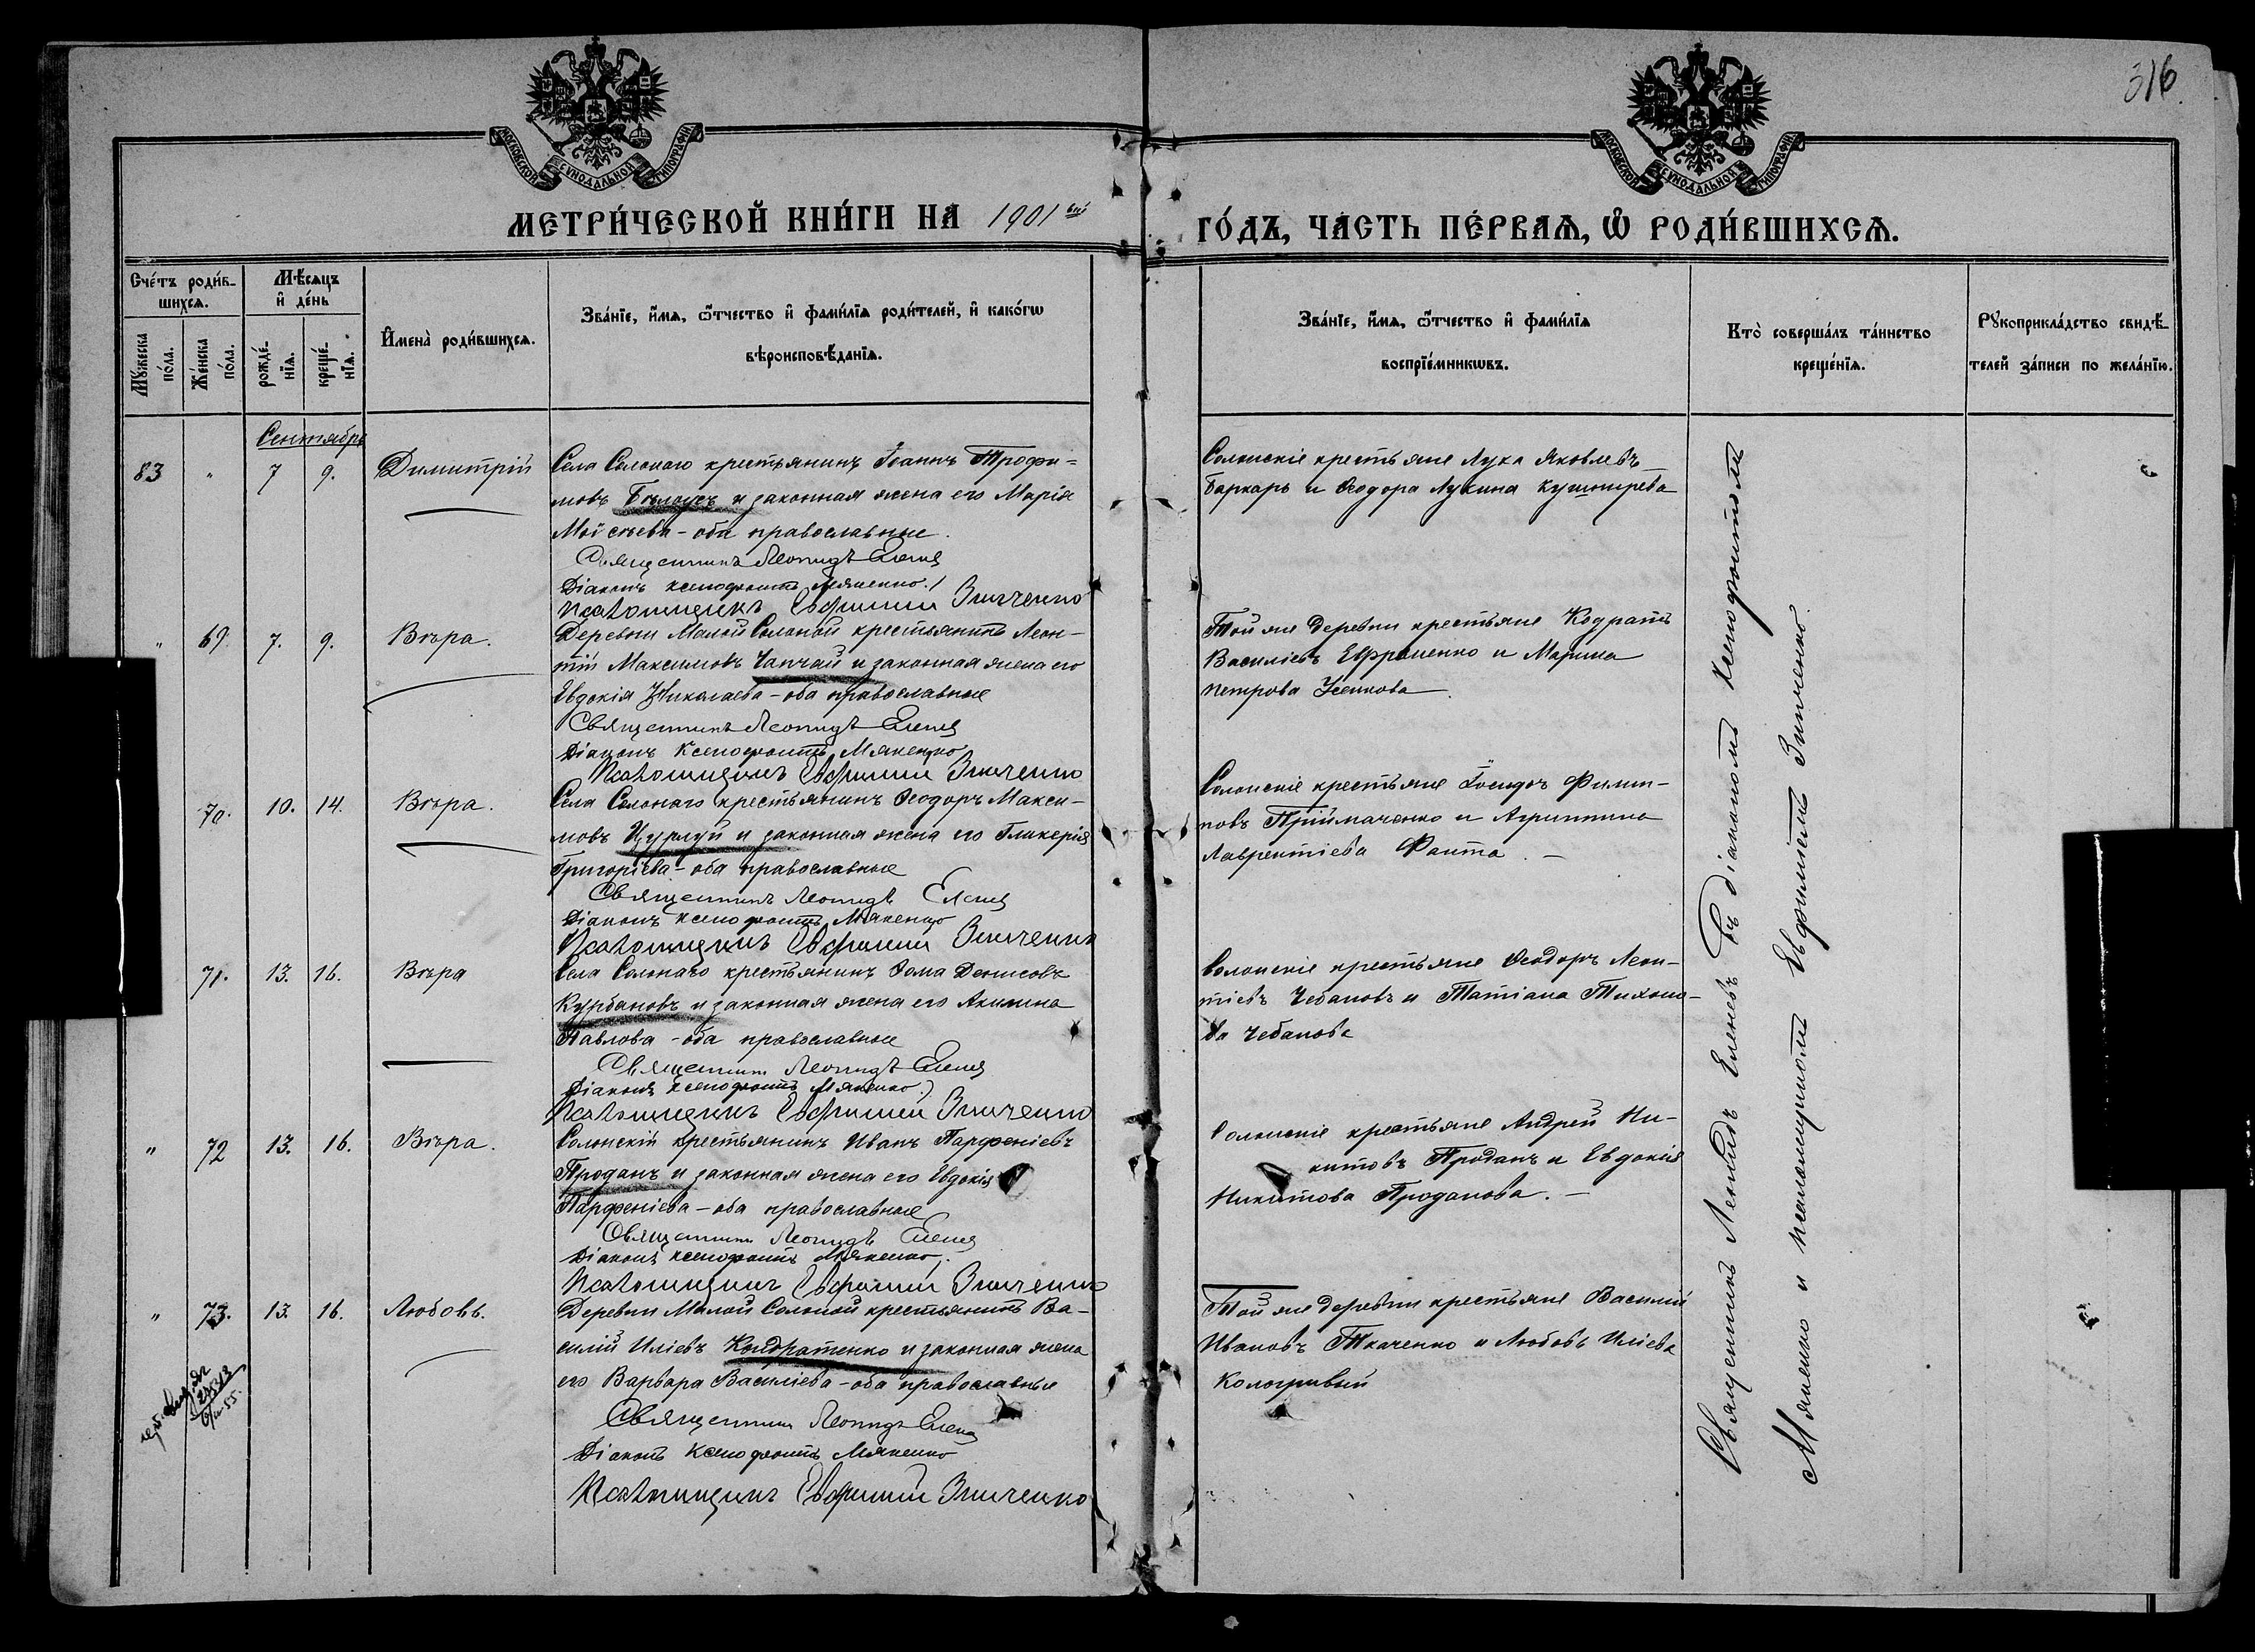 316
МОСКОВСКОЙ СУНОДАЛЬНОЙ ТИПОГРАФІИ
МОСКОВСКОЙ СУНОДАЛЬНОЙ ТИПОГРАФІИ
МЕТРИ́ЧЕСКОЙ КНИ́ГИ НА 1901 вый
ГО́ДЪ, ЧАСТЬ ПЕ́РВАЯ, Ѡ РОДИ́ВШИХСЯ.
Сче́тъ роди́в-
шихся.
Мѣ́сяцъ
и́ де́нь
Му́жеска
по́ла.
Же́нска
по́ла.
рожде́-
нїя.
креще́-
нїя.
И҆мена̀ роди́вшихся.
Зва́нїе, и҆́мя, ѻ҆́тчество и҆ фами́лїя роди́телей, и҆ како́гѡ
вѣроисповѣ́данїя.
Зва́нїе, и҆́мя, ѻ҆́тчество и҆ фами́лїя
воспрїе́мникѡвъ.
Кто̀ соверша́лъ та́инство
креще́нїя.
Рꙋкоприкла́дство свидѣ́-
телей за́писи по жела́нїю.
Сентябрь
83 " 7 9. Димитрій
Села Солонаго крестьянинъ Іоаннъ Трофи-
мовъ Бѣлоусъ и законная жена его Марія
Мойсѣева - оба православные.
Священникъ Леонидъ Еленевъ
Діаконъ Ксенофонтъ Мякенко
Псаломщикъ Евфимий Зинченко
Солонскіе крестьяне Лука Яковлевъ
Баркарь и Ѳеодора Лукина Кушнирева
" 69. 7. 9. Вѣра.
Деревни Малой Солоной крестьянинъ Леон-
тій Максимовъ Чапчай и законная жена его
Евдокія Николаева - оба православные
Священникъ Леонидъ Еленевъ
Діаконъ Ксенофонтъ Мякенко
Псаломщикъ Евфимий Зинченко
Той же деревни крестьяне Кодратъ
Василіевъ Ефременко и Марина
Петрова Усенкова.
70. 10. 14. Вѣра.
Села Солонаго крестьянинъ Ѳеодоръ Макси-
мовъ Цурлуй и законная жена его Гликерія
Григоріева - оба православные
Священникъ Леонидъ Еленевъ
Діаконъ Ксенофонтъ Мякенко
Псаломщикъ Евфимий Зинченко
Солонскіе крестьяне Іосифъ Филип-
повъ Прійmаченко и Агриппина
Лаврентіева Фанта. -
71. 13. 16. Вѣра
Села Солонаго крестьянинъ Ѳома Денисовъ
Курбановъ и законная жена его Акилина
Павлова - оба православные
Священникъ Леонидъ Еленевъ
Діаконъ Ксенофонтъ Мякенко
Псаломщикъ Евфимий Зинченко
Солонскіе крестьяне Ѳеодоръ Леон-
тіевъ Чебановъ и Татіана Тихоно-
ва Чебанова
" 72 13. 16. Вѣра.
Солонскій крестьянинъ Иванъ Парфеніевъ
Проданъ и законная жена его Евдокія
Парфеніева - оба православные
Священникъ Леонидъ Еленевъ
Діаконъ Ксенофонтъ Мякенко
Псаломщикъ Евфимий Зинченко
Солонскіе крестьяне Андрей Ни-
китовъ Проданъ и Евдокія
Никитова Проданова. -
" 73. 13. 16. Любовь.
Деревни Малой Солоной крестьянинъ Ва-
силій Иліевъ Кондратенко и законная жена
его Варвара Василіева - оба православные
Священникъ Леонидъ Еленевъ
Діаконъ Ксенофонтъ Мякенко
Псаломщикъ Евфимий Зинченко
Той же деревни крестьяне Василій
Ивановъ Ткаченко и Любовь Иліева
Кологривый
Священникъ Леонидъ Еленевъ съ діакономъ Ксенофонтомъ
Мякенко и псаломщикомъ Евфиміемъ Зинченко.